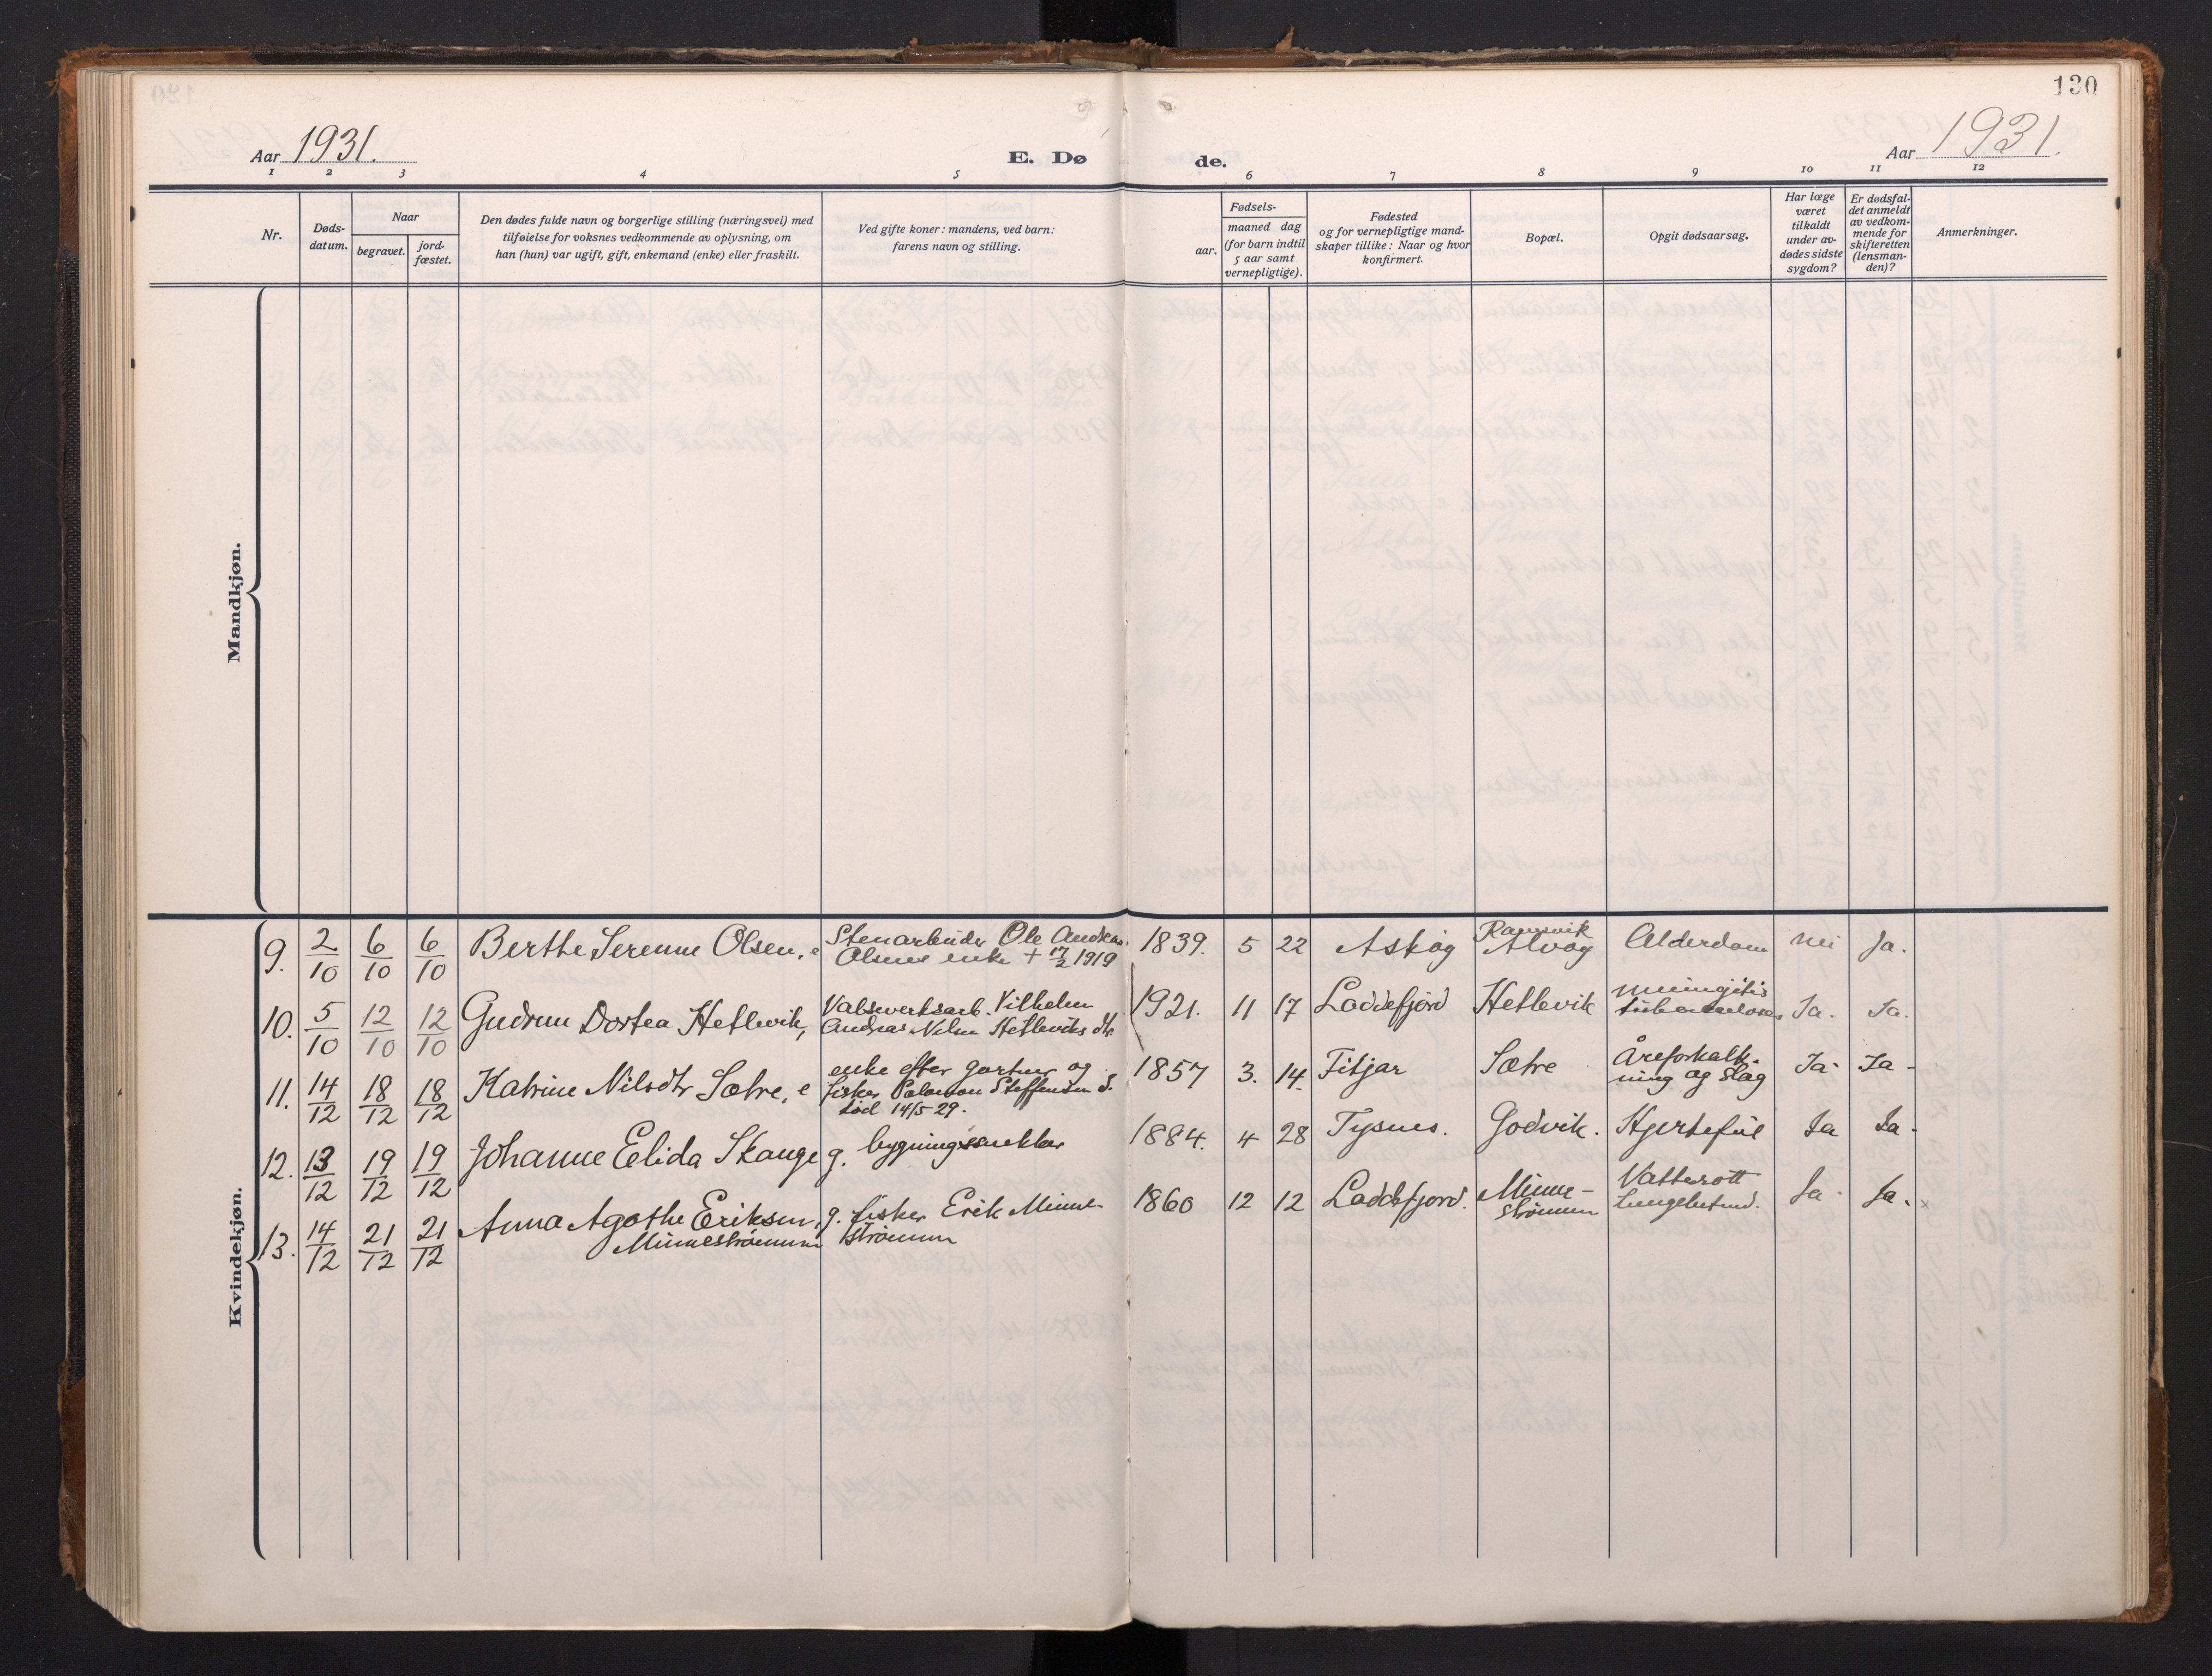 130
Aar 1931.
E. Dø
de.
Aar 1931.
1 2 3 4 5 6 7 8 9 10 11 12
Nr.
Døds-
datum.
Naar
begravet.
jord-
fæstet.
Den dødes fulde navn og borgerlige stilling (næringsvei) med
tilføielse for voksnes vedkommende av oplysning, om
han (hun) var ugift, gift, enkemand (enke) eller fraskilt.
Ved gifte koner: mandens, ved barn:
farens navn og stilling.
Fødsels-
aar.
maaned dag
(for barn indtil
5 aar samt
vernepligtige).
Fødested
og for vernepligtige mand-
skaper tillike: Naar og hvor
konfirmert.
Bopæl.
Opgit dødsaarsag.
Har læge
været
tilkaldt
under av-
dødes sidste
sygdom?
Er dødsfal-
det anmeldt
av vedkom-
mende for
skifteretten
(lensman-
den)?
Anmerkninger.
Mandkjøn.
Kvindekjøn.
9. 2/10 6/10 6/10 Berthe Serenne Olsen, e Stenarbeider Ole Andreas
Olsens enke + 17/2 1919 1839. 5 22 Askøy Ramsvik
Alvøy Alderdom nei Ja.
10. 5/10 12/10 12/10 Gudrun Dortea Hetlevik, Valseverksarb. Vilhelm
Andreas Nilsen Hetleviks dtr 1921. 11 17 Laddefjord Hetlevik meningitis
tuberculosa Ja. Ja.
11. 14/12 18/12 18/12 Katrine Nilsdtr Sætre, e enke efter gartner og
fisker Salomon Steffensen S.
død 14/5 29. 1857 3. 14 Fitjar Sætre Åreforkalk-
ning og slag Ja. Ja.
12. 13/12 19/12 19/12 Johanne Elida Skauge g. bygningssnekker 1884. 4 28 Tysnes. Godvik. Hjertefeil Ja Ja.
13. 14/12 21/12 21/12 Anna Agathe Eriksen,
Minnestrømmen g. fisker Erik Minne-
strømmen 1860 12 12 Laddefjord. Minne-
strømmen Vattersott
Lungebetend. Ja. Ja.